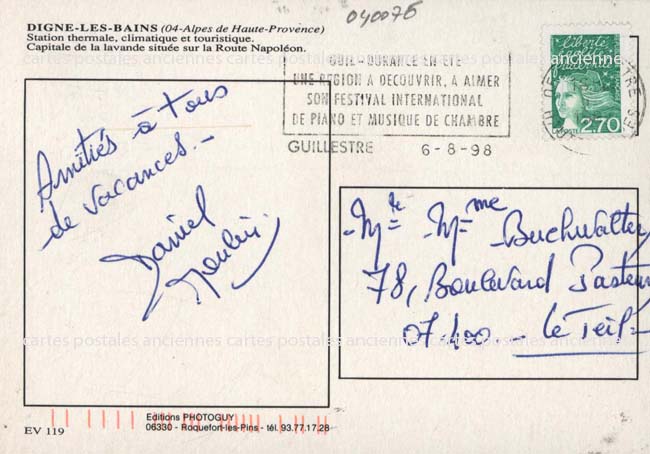 040075
DIGNE-LES-BAINS (04-Alpes de Haute-Provence)
Station thermale, climatique et touristique.
Capitale de la lavande située sur la Route Napoléon.
cartes postales anciennes cartes postales anciennes cartes postales anciennes
GUIL-DURANCE EN ETE
UNE REGION A DECOUVRIR, A AIMER
SON FESTIVAL INTERNATIONAL
DE PIANO ET MUSIQUE DE CHAMBRE
GUILLESTRE 6-8-98
liberté
égalité
LA POSTE 2,70
Amitiés à tous
de vacances.-
Daniel
Mr Mme Buchwalter
78, Boulevard Pasteur
07400 - Le Teil -
cartes postales anciennes cartes postales anciennes cartes postales anciennes
Editions PHOTOGUY
06330 - Roquefort-les-Pins - tél. 93.77.17.28
EV 119